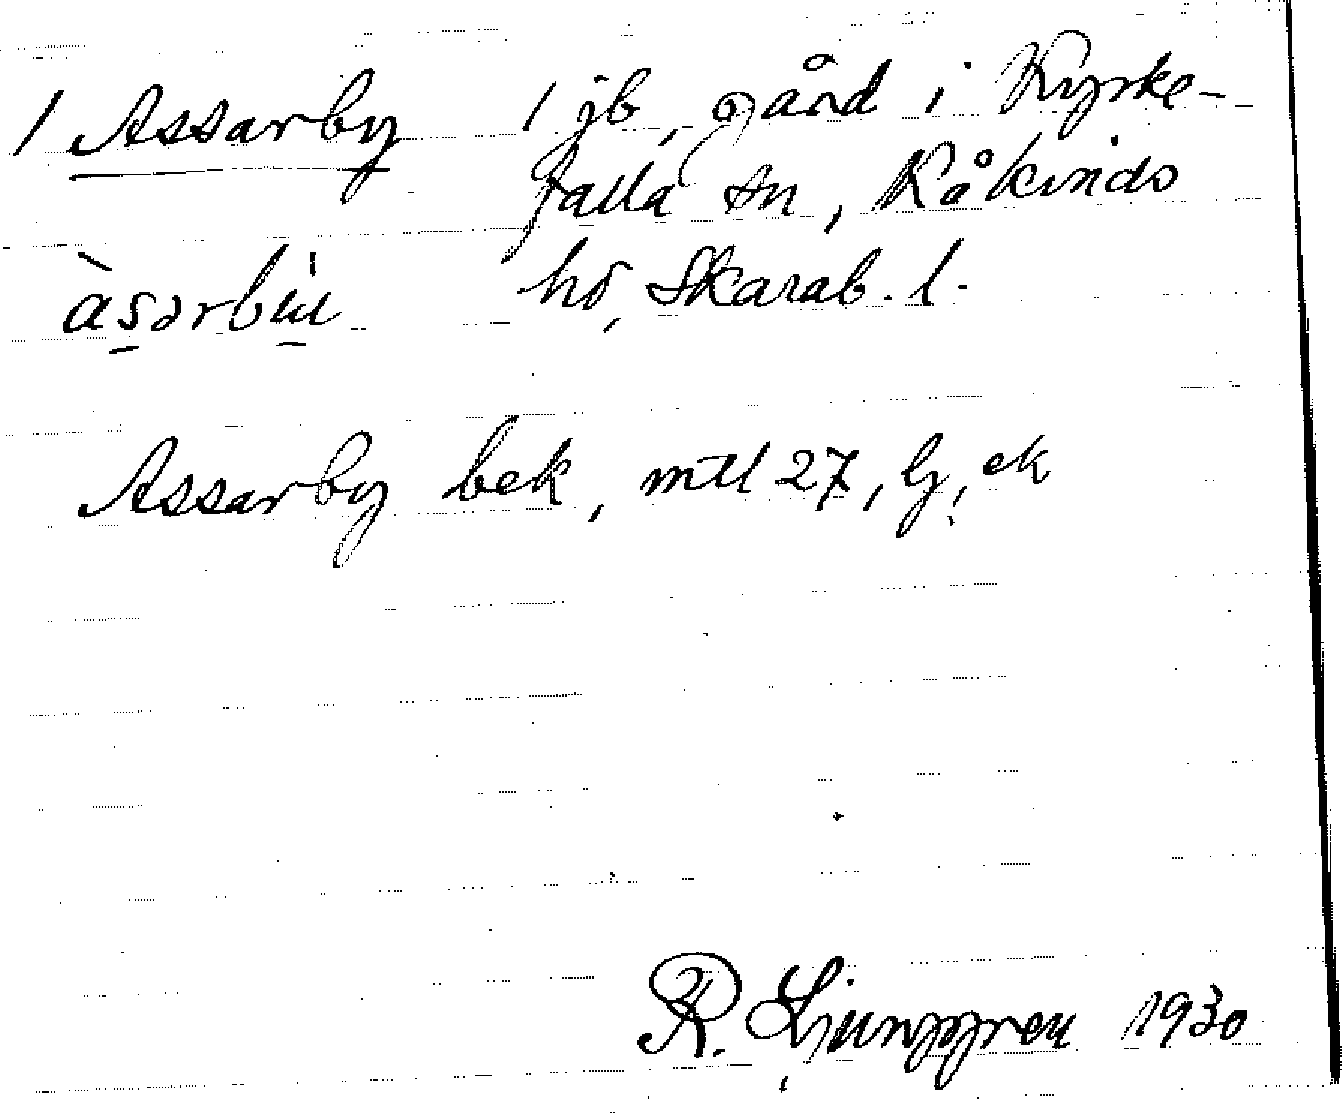 1 Assarby 1 jb, gård i Kyrke-
falla sn, Kåkinds
àsarbı̍ hd, Skarab. l.
Assarby bek, mtl 27, G, ek
R. Ljunggren 1930